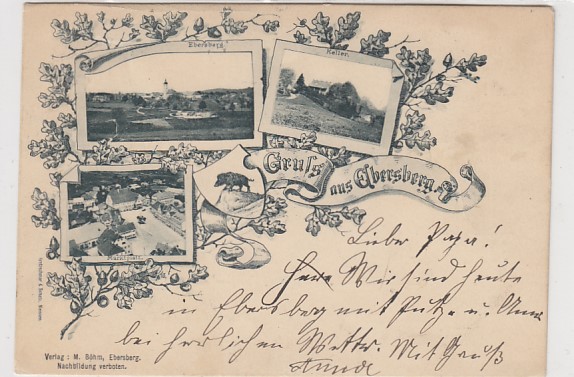 Ebersberg.
Keller.
Gruss
aus Ebersberg.
Marktplatz.
Lieber Papa!
Wir sind heute
in Ebersberg mit Putz- u. Anna
bei herrlichen Wettr. Mit Gruß
Anna
Verlag : M. Böhm, Ebersberg.
Nachbildung verboten.